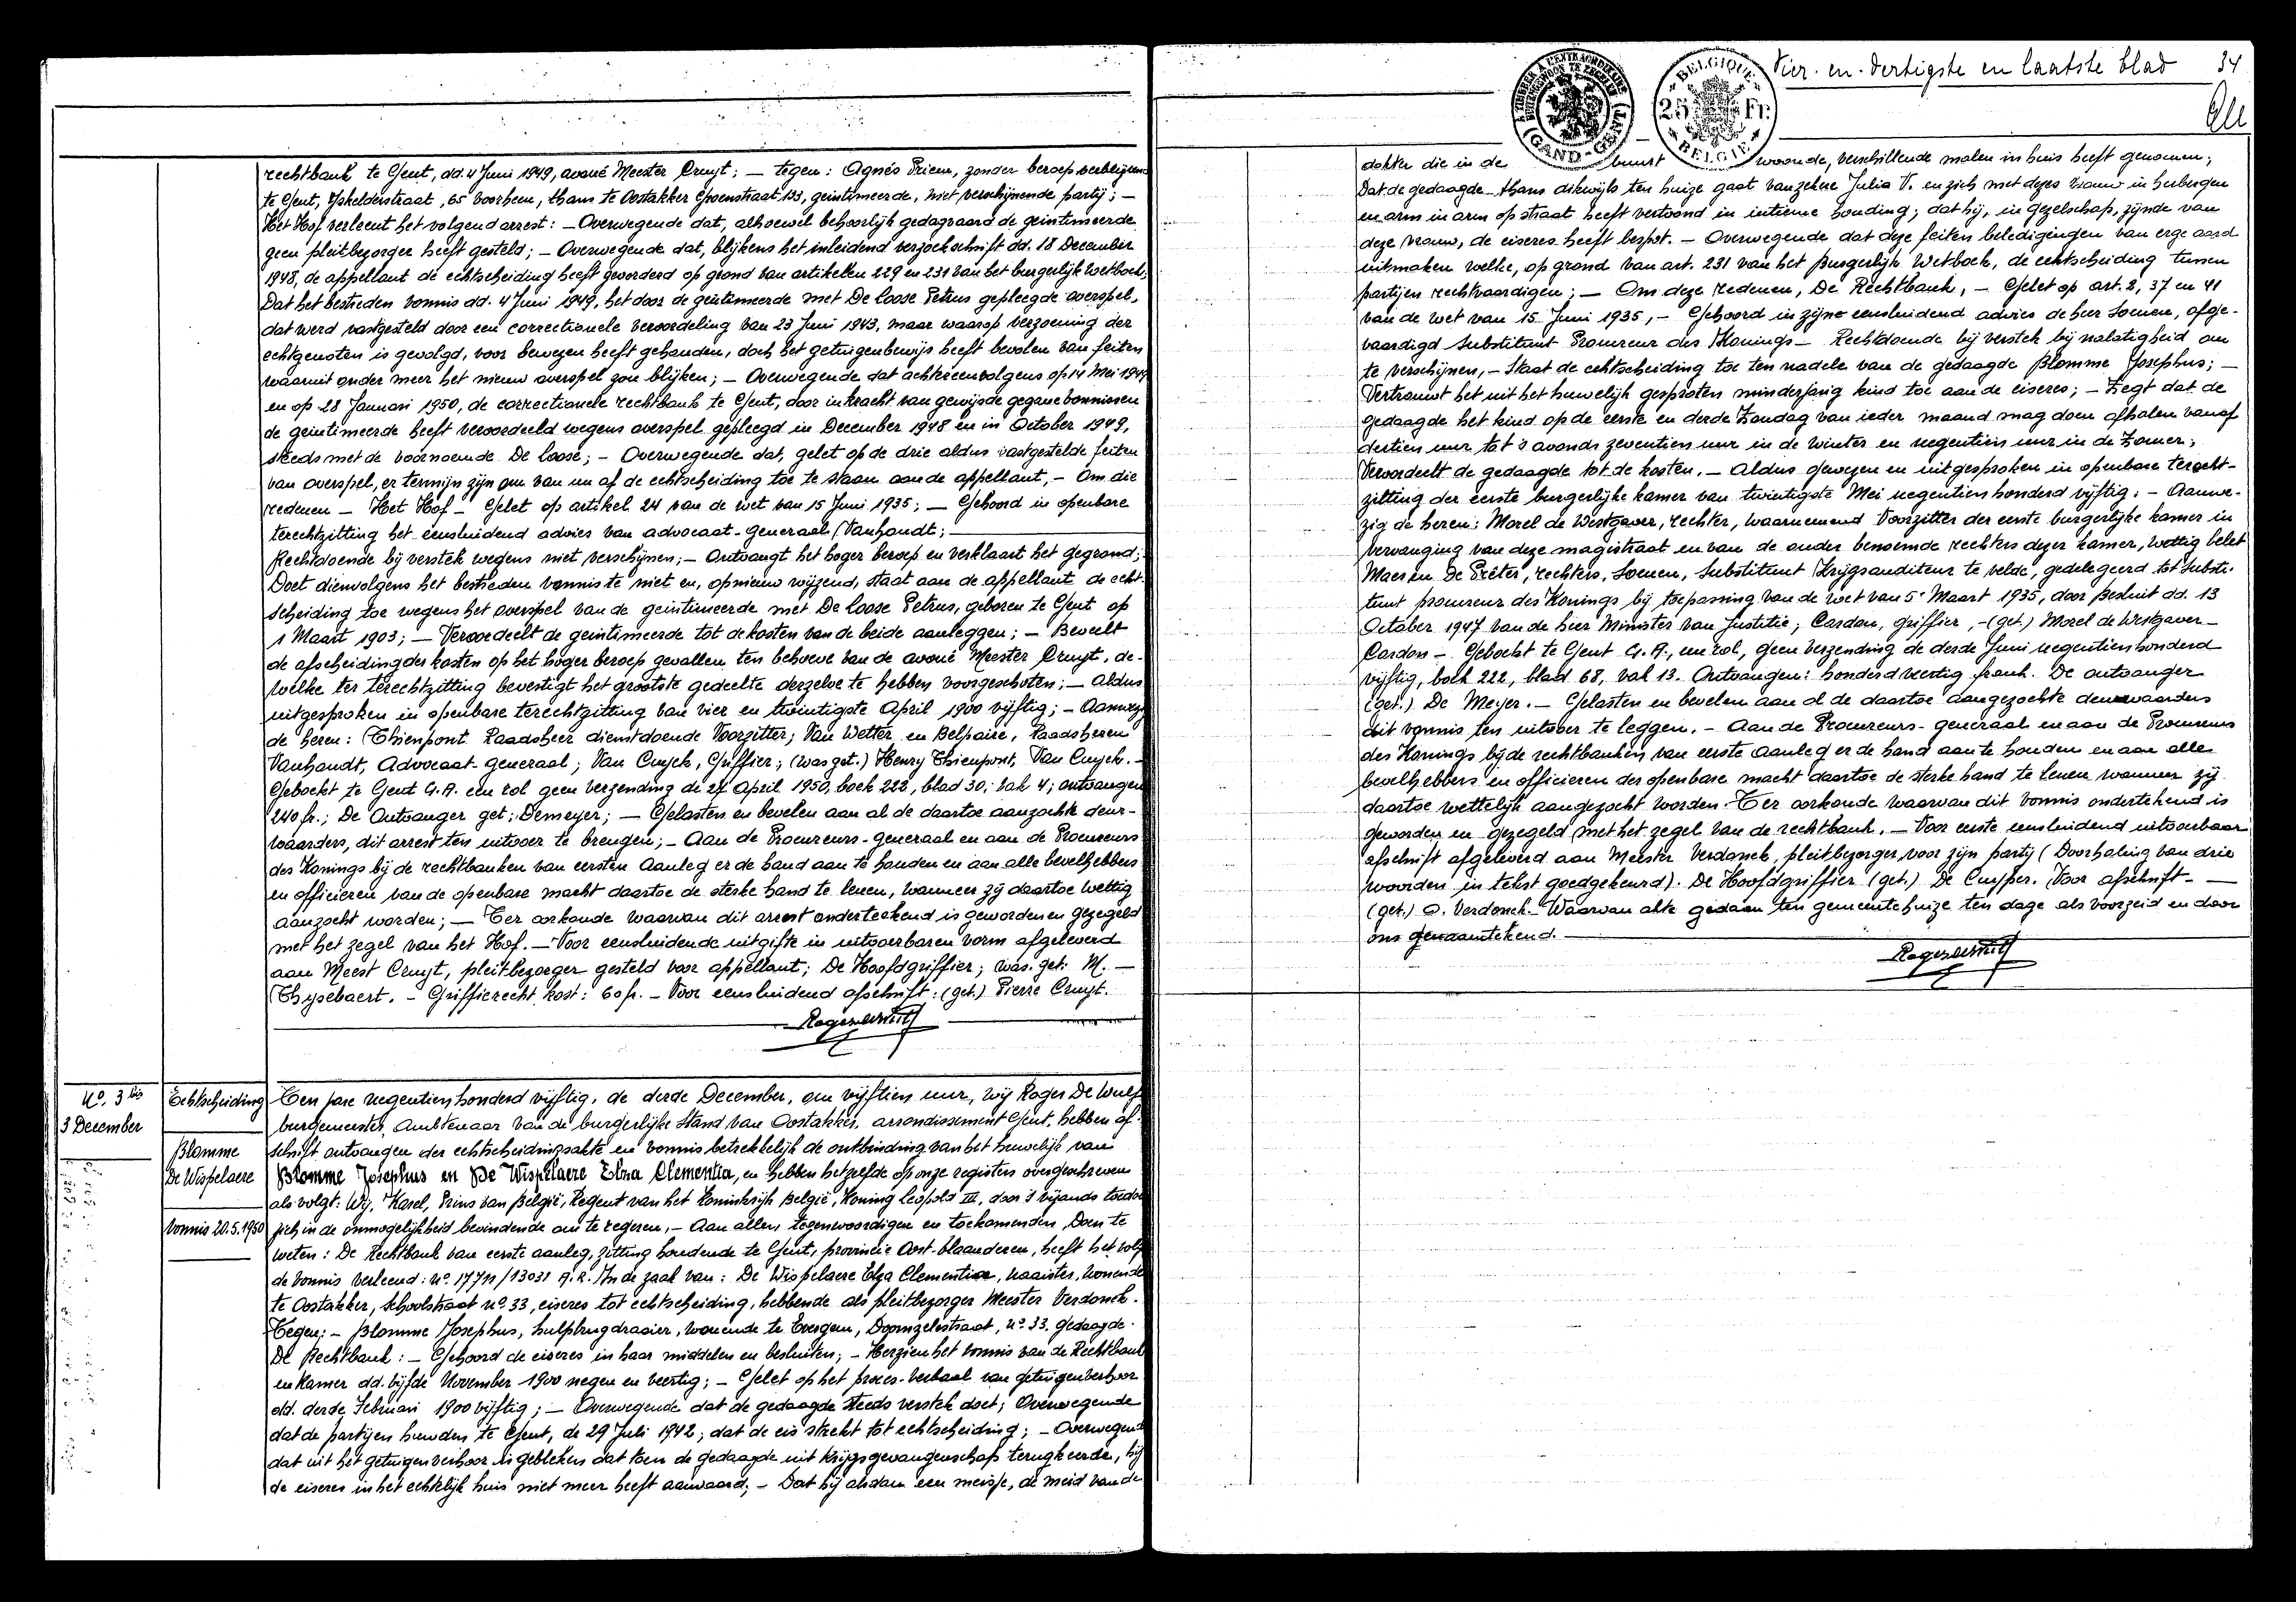 rechtbank te Gent, dd. 4 Juni 1949, avoué Meester Cruyt; — tegen: Agnés Priem, zonder beroep verblijvend
te Gent, 65 voorheen, thans te Oostakker Groenstraat 133, geintimeerde, niet verschijnende partij; —
Het Hof verleent het volgend arrest: — Overwegende dat, alhoewel behoorlijk gedagvaard de geintimeerde
geen pleitbezorger heeft gesteld; — Overwegende dat, blijkens het inleidend verzoekschrift dd. 18 December
1948, de appellant de echtscheiding heeft gevorderd op grond van artikelen 229 en 231 van het burgerlijk wetboek;
Dat het bestreden vonnis dd. 4 Juni 1949, het door de geintimeerde met De loose Petrus gepleegde overspel,
dat werd vastgesteld door een correctionele veroordeling van 23 Juni 1943, maar waarop verzoening der
echtgenoten is gevolgd, voor bewezen heeft gehouden, doch het getuigenbewijs heeft bevolen van feiten
waaruit onder meer het nieuw overspel zou blijken; — Overwegende dat achtereenvolgens op 14 Mei 1949
en op 28 Januari 1950, de correctionele rechtbank te Gent, door in kracht van gewijsde gegane vonnissen
de geintimeerde heeft veroordeeld wegens overspel gepleegd in December 1948 en in October 1949,
steeds met de voornoemde De loose; — Overwegende dat, gelet op de drie aldus vastgestelde feiten
van overspel, er termijn zijn om van nu af de echtscheiding toe te staan aan de appellant, — Om die
redenen — Het Hof — Gelet op artikel 24 van de wet van 15 Juni 1935; — Gehoord in openbare
terechtzitting het eensluidend advies van advocaat-generaal Vanhoudt;
Rechtdoende bij verstek wegens niet verschijnen; — Ontvangt het hoger beroep en verklaart het gegrond;
Doet dienvolgens het bestreden vonnis te niet en, opnieuw wijzend, staat aan de appellant de echt-
scheiding toe wegens het overspel van de geintimeerde met De loose Petrus, geboren te Gent op
1 Maart 1903; — Veroordeelt de geintimeerde tot de kosten van de beide aanleggen; — Beveelt
de afscheiding der kosten op het hoger beroep gevallen ten behoeve van de avoué Meester Cruyt, de-
welke ter terechtzitting bevestigt het grootste gedeelte derzelve te hebben voorgeschoten; — Aldus
uitgesproken in openbare terechtzitting van vier en twintigste April 1900 vijftig; — Aanwezig
de heren: Thienpont Raadsheer dienstdoende Voorzitter; Van Wetter en Belpaire, Raadsheren
Vanhoudt, Advocaat-generaal; Van Cuyck, Griffier; (was get.) Henry Thienpont, Van Cuyck. —
Geboekt te Gent G.A. een rol geen verzending de 27 April 1950, boek 222, blad 30; vak 4; ontvangen
240 fr.; De Ontvanger get: Demeyer; — Gelasten en bevelen aan al de daartoe aanzochte deur-
waarders, dit arrest ten uitvoer te brengen; — Aan de Procureurs-generaal en aan de Procureurs
des Konings bij de rechtbanken van eersten Aanleg er de hand aan te houden en aan alle bevelhebbers
en officieren van de openbare macht daartoe de sterke hand te lenen, wanneer zij daartoe wettig
aanzocht worden; — Ter oorkonde waarvan dit arrest ondertekend is geworden en gezegeld
met het zegel van het Hof. — Voor eensluidende uitgifte in uitvoerbaren vorm afgeleverd
aan Meest Cruyt, pleitbezorger gesteld voor appellant; De Hoofdgriffier; was. get: M. —
Thysebaert. — Griffierecht kost: 60 fr. — Voor eensluidend afschrift: (get.) Pierre Cruyt.
No. 3 bis
3 December
Echtscheiding
Blomme
De Wispelaere
Vonnis 20.5.1950
Ten jare negentien honderd vijftig, de derde December, om vijftien uur, wij Roger De Wulf
burgemeester, Ambtenaar van de burgerlijke Stand van Oostakker, arrondissement Gent, hebben af-
schrift ontvangen der echtscheidingsakte en vonnis betrekkelijk de ontbinding van het huwelijk van
Blomme Josephus en De Wispelaere Elza Clementia, en hebben hetzelfde op onze registers overgeschreven
als volgt: Wij, Karel, Prins van België, Regent van het Koninkrijk België, Koning Leopold III, door 's vijands toedoen
zich in de onmogelijkheid bevindende om te regeren, — Aan allen, tegenwoordigen en toekomenden, Doen te
weten: De Rechtbank van eerste aanleg, zitting houdende te Gent, provincie Oost-Vlaanderen, heeft het volgen
de vonnis verleend: no. 17711/13031 A.R. In de zaak van: De Wispelaere Elza Clementia, naaister, wonende
te Oostakker, Schoolstraat no. 33, eiseres tot echtscheiding, hebbende als pleitbezorger Meester Verdonck.
Tegen: — Blomme Josephus, hulpbrugdraaier, wonende te Evergem, Doornzelestraat, no. 33. gedaagde.
De Rechtbank: — Gehoord de eiseres in haar middelen en besluiten; — Herzien het vonnis van de Rechtbank
en Kamer dd. vijfde November 1900 negen en veertig; — Gelet op het proces-verbaal van getuigenverhoor
dd. derde Februari 1900 vijftig; — Overwegende dat de gedaagde steeds verstek doet; Overwegende
dat de partijen huwden te Gent, de 29 Juli 1942; dat de eis strekt tot echtscheiding; — Overwegende
dat uit het getuigenverhoor is gebleken dat toen de gedaagde uit krijgsgevangenschap terugkeerde, hij
de eiseres in het echtelijk huis niet meer heeft aanvaard; — Dat hij alsdan een meisje, de meid van de
Vier-en-dertigste en laatste blad 34
GAND-GENT
BELGIQUE
25 Fr.
BELGIE
dokter die in de buurt woonde, verschillende malen in huis heeft genomen;
Dat de gedaagde thans dikwijls ten huize gaat van zekere Julia V. en zich met dezes vrouw in herbergen
en arm in arm op straat heeft vertoond in intieme houding; dat hij, in gezelschap, zijnde van
deze vrouw, de eiseres heeft bespot. — Overwegende dat deze feiten beledigingen van erge aard
uitmaken welke, op grond van art. 231 van het Burgerlijk Wetboek, de echtscheiding tussen
partijen rechtvaardigen; — Om deze redenen, De Rechtbank, — Gelet op art. 2, 37 en 41
van de wet van 15 Juni 1935, — Gehoord in zijne eensluidend advies de heer Soenen, afge-
vaardigd Substituut Procureur des Konings — Rechtdoende bij verstek bij nalatigheid om
te verschijnen, — Staat de echtscheiding toe ten nadele van de gedaagde Blomme Josephus; —
Vertrouwt het uit het huwelijk gesproten minderjarig kind toe aan de eiseres; — Zegt dat de
gedaagde het kind op de eerste en derde Zondag van ieder maand mag doen afhalen vanaf
dertien uur, tot 's avonds zeventien uur in de Winter en negentien uur in de Zomer;
Veroordeelt de gedaagde tot de kosten. — Aldus gewezen en uitgesproken in openbare terecht-
zitting der eerste burgerlijke kamer van twintigste Mei negentien honderd vijftig: — Aanwe-
zig de heren: Morel de Westgaver, rechter, waarnemend Voorzitter der eerste burgerlijke kamer in
vervanging van deze magistraat en van de ouder benoemde rechters dezer kamer, wettig belet
Maes en De Prêter, rechters, Soenen, Substituut Krijgsauditeur te velde, gedelegeerd tot Substi-
tuut procureur des Konings bij toepassing van de wet van 5 Maart 1935, door Besluit dd. 13
October 1947 van de heer Minister van Justitie; Cardon, griffier, — (get.) Morel de Westgaver —
Cardon — Geboekt te Gent G.A., een rol, geen verzending de derde Juni negentien honderd
vijftig, boek 222, blad 68, vak 13. Ontvangen: honderd veertig frank. De ontvanger
(get.) De Meyer. — Gelasten en bevelen aan al de daartoe aangezochte deurwaarders
dit vonnis ten uitvoer te leggen. — Aan de Procureurs-generaal en aan de Procureurs
des Konings bij de rechtbanken van eerste aanleg er de hand aan te houden en aan alle
bevelhebbers en officieren der openbare macht daartoe de sterke hand te lenen wanneer zij
daartoe wettelijk aangezocht worden. Ter oorkonde waarvan dit vonnis ondertekend is
geworden en gezegeld met het zegel van de rechtbank. — Voor eerste eensluidend uitvoerbaar
afschrift afgeleverd aan Meester Verdonck, pleitbezorger voor zijn partij (Doorhaling van drie
woorden in tekst goedgekeurd). De Hoofdgriffier (get.) De Cuyper. Voor afschrift. —
(get.) O. Verdonck. Waarvan akte gedaan ten gemeentehuize ten dage als voorzeid en door
ons